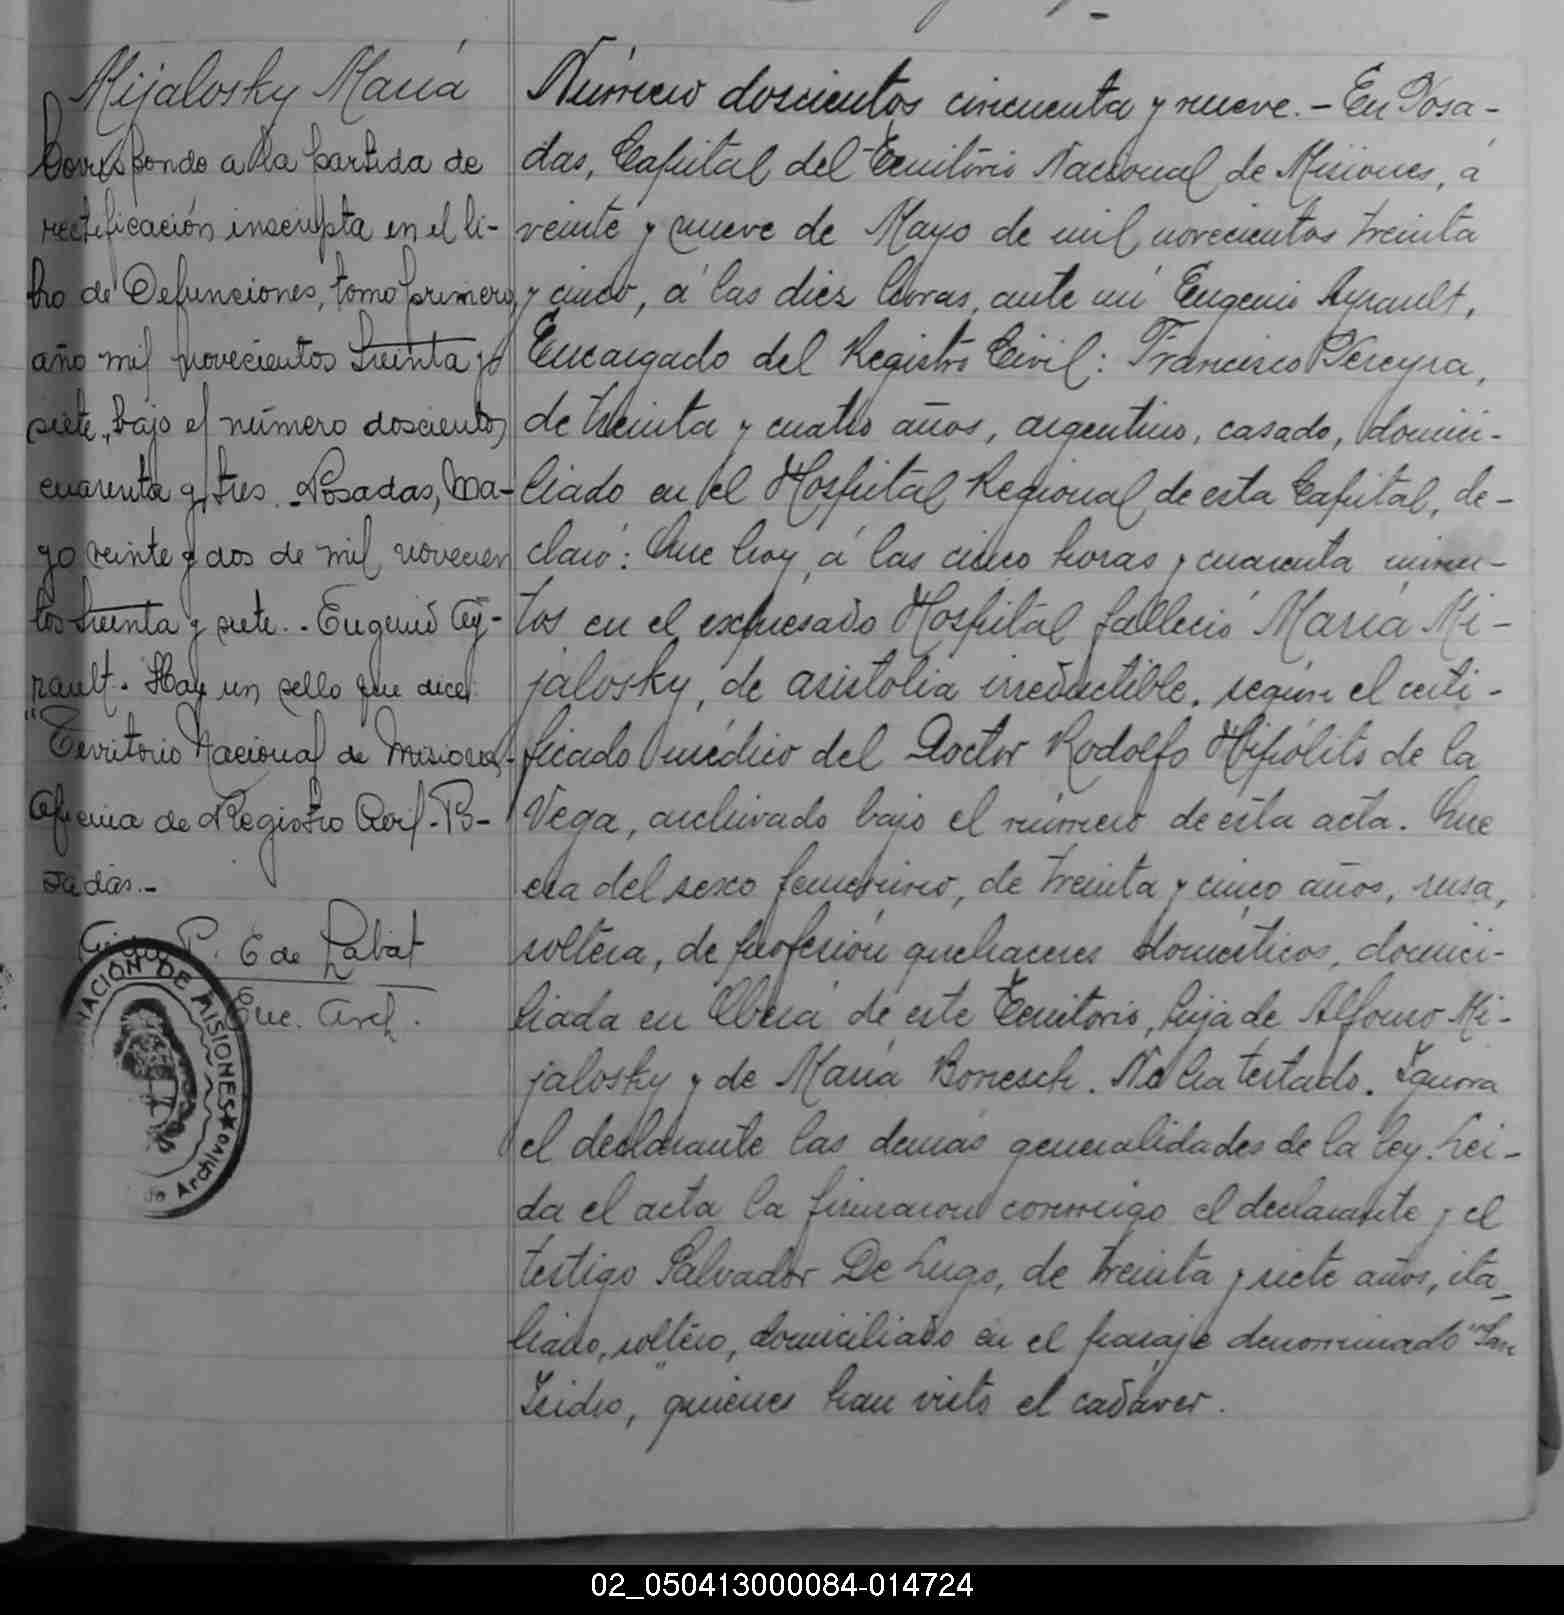 Mijalosky María
Corresponde a la partida de
rectificación inscripta en el li-
bro de Defunciones, tomo primero,
año mil novecientos treinta y
siete, bajo el número doscientos
cuarenta y tres. Posadas, Ma-
yo veinte y dos de mil novecien
tos treinta y siete. - Eugenio Ay-
rault. Hay un sello que dice:
"Territorio Nacional de Misiones -
Oficina de Registro Civil - Po-
sadas. -
P. E de Labat
Enc. Arch.
NACIÓN DE MISIONES
de Archivo
Número doscientos cincuenta y nueve. - En Posa-
das, Capital del Territorio Nacional de Misiones, á
veinte y nueve de Mayo de mil novecientos treinta
y cinco, á las diez horas, ante mí Eugenio Ayrault,
Encargado del Registro Civil: Francisco Pereyra,
de treinta y cuatro años, argentino, casado, domici-
liado en el Hospital Regional de esta Capital, de-
claró: Que hoy, á las cinco horas y cuarenta minu-
tos en el expresado Hospital falleció María Mi-
jalosky, de asistolia irreductible, según el certi-
ficado médico del Doctor Rodolfo Hipólito de la
Vega, archivado bajo el número de esta acta. Que
era del sexo femenino, de treinta y cinco años, rusa,
soltera, de profesión quehaceres domésticos, domici-
liada en Oberá de este Territorio, hija de Alfonso Mi-
jalosky y de María Borresch. No ha testado. Ignora
el declarante las demás generalidades de la ley. Lei-
da el acta la firmaron conmigo el declarante y el
testigo Salvador De Lugo, de treinta y siete años, ita-
liano, soltero, domiciliado en el paraje denominado "San
Isidro," quienes han visto el cadáver.
02_050413000084-014724